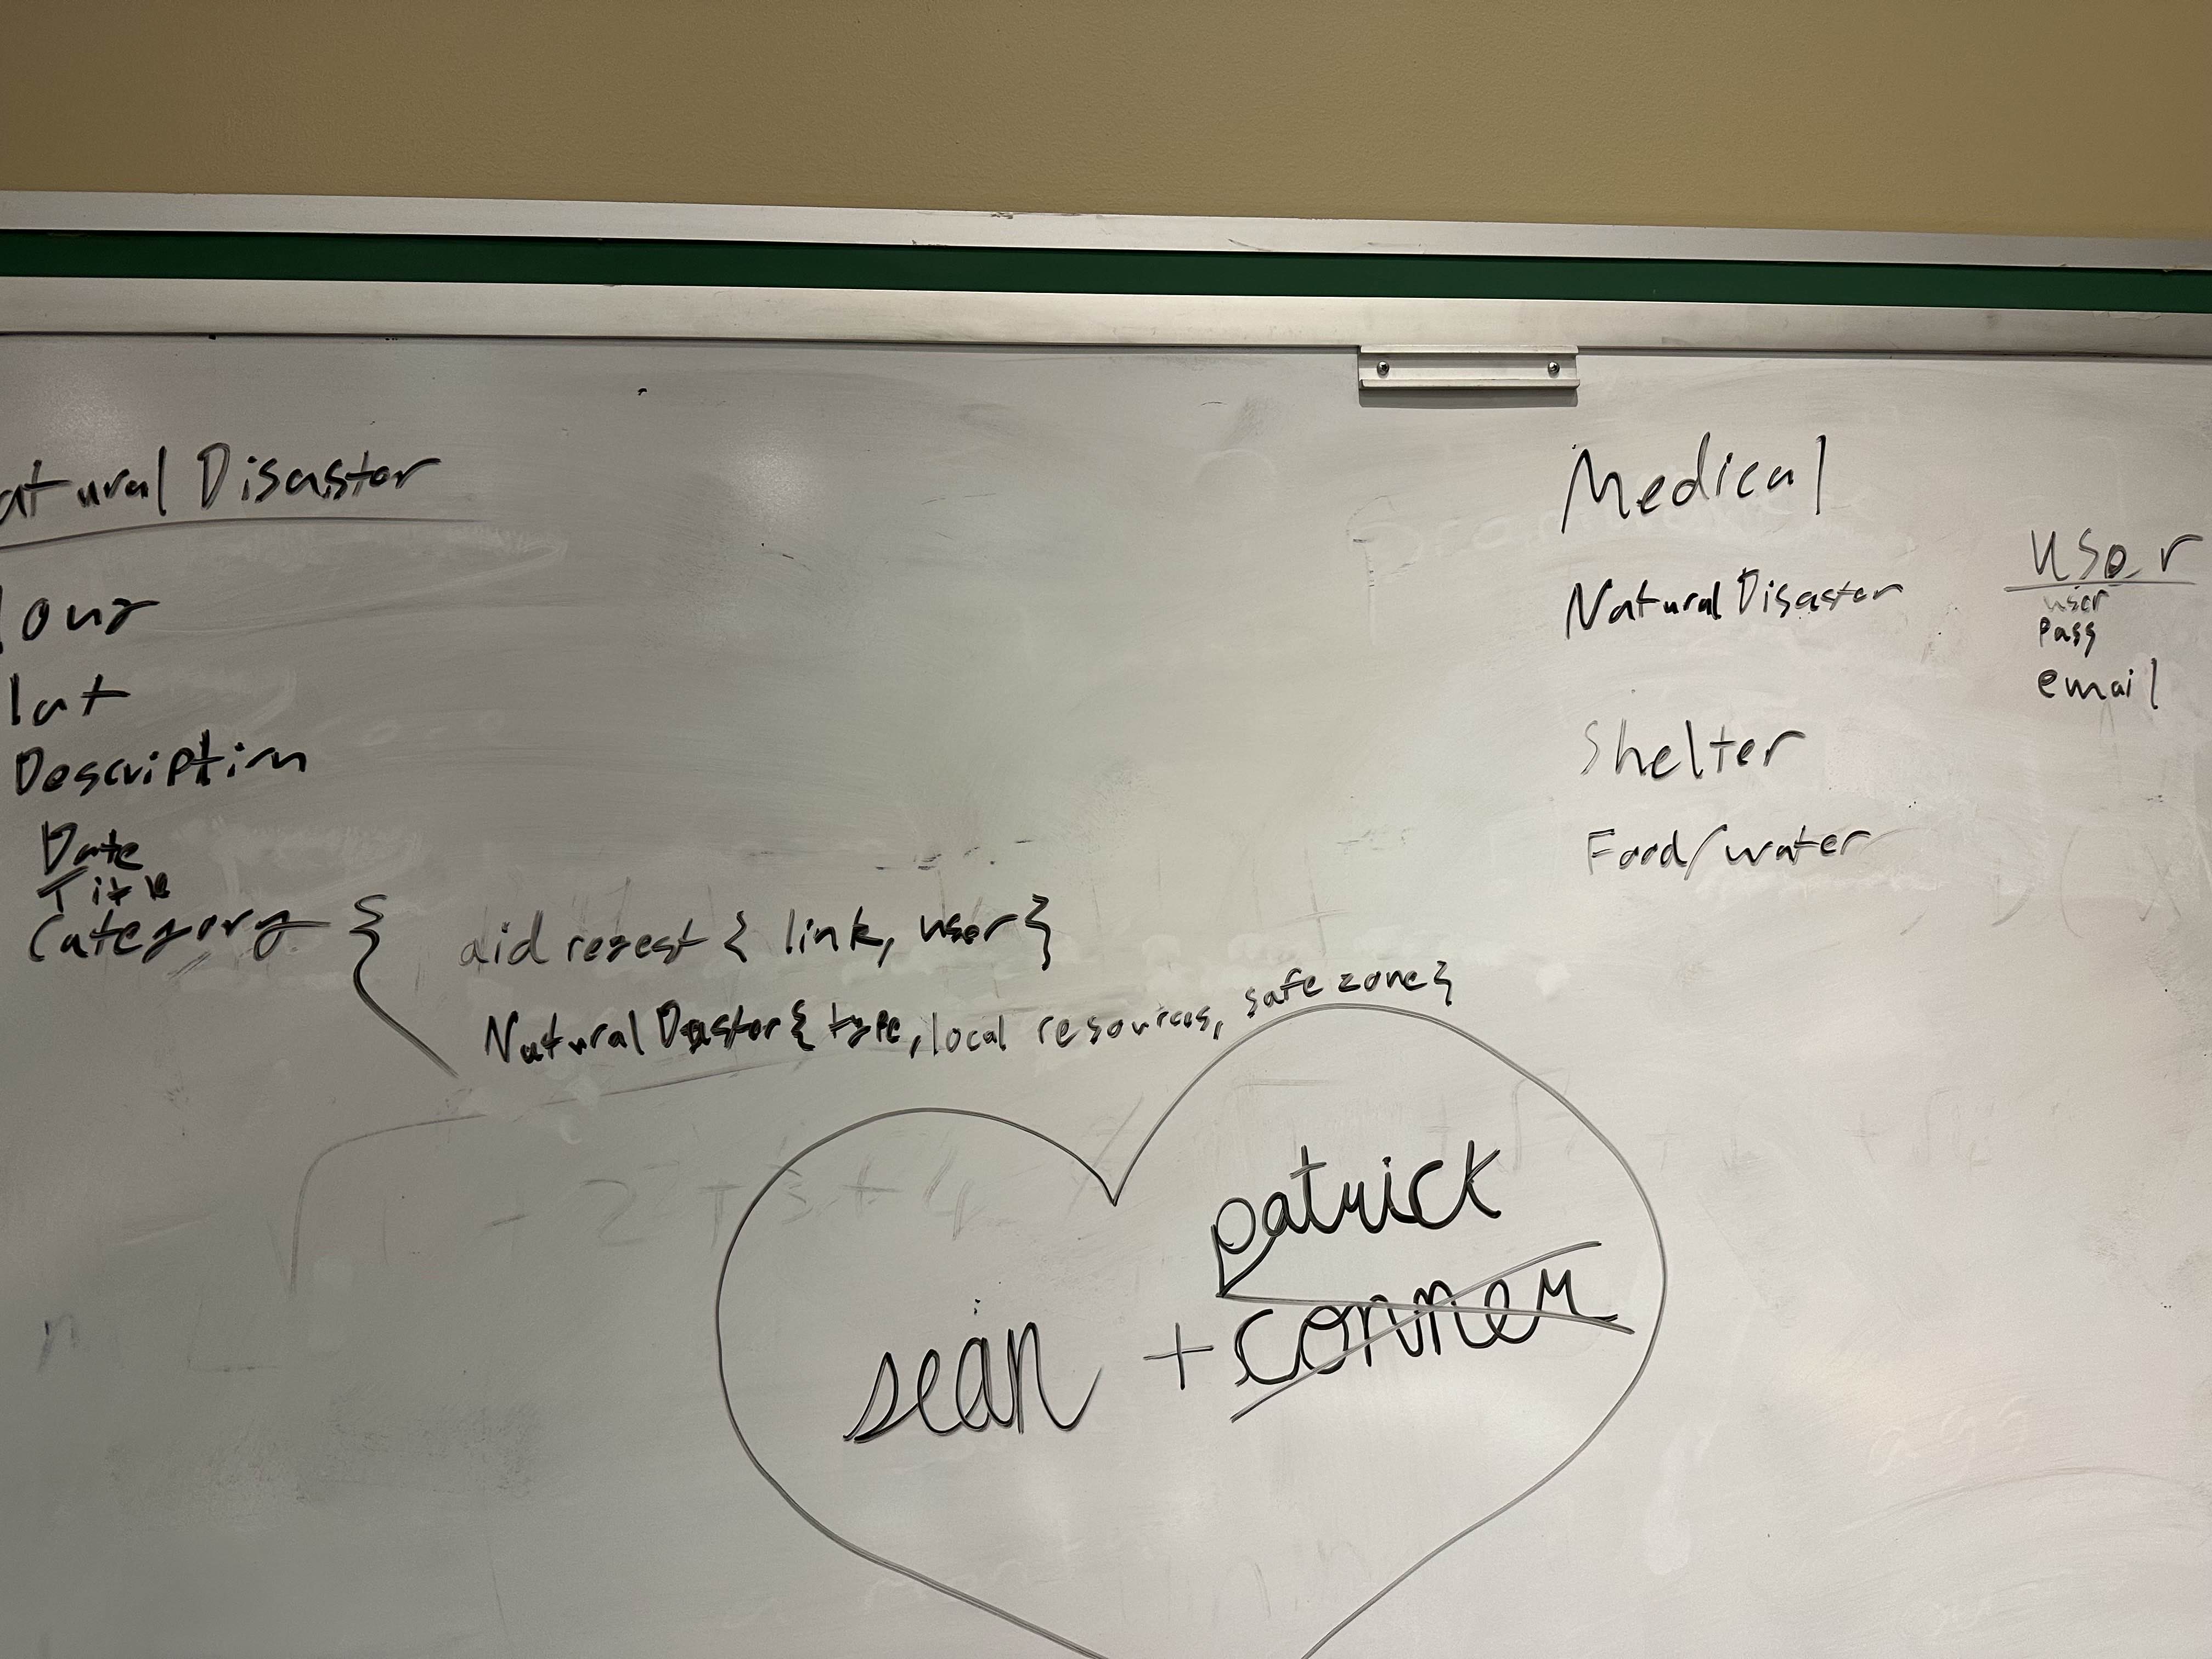 atural Disaster
long
lat
Description
Date
Title
Category {
aid reqest { link, user }
Natural Disaster { type, local resources, safe zone }
Medical
Natural Disaster
Shelter
Food/water
user
user
pass
email
patrick
sean + conner